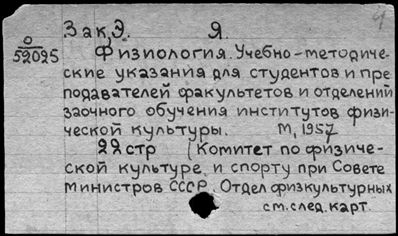 Зак, Э. Я.
О
52025
Физиология. Учебно-методиче-
ские указания для студентов и пре
подавателей факультетов и отделений
заочного обучения институтов физи-
ческой культуры. М, 1957
22 стр (Комитет по физиче-
ской культуре и спорту при Совете
Министров СССР. Отдел физкультурных
см. след. карт.